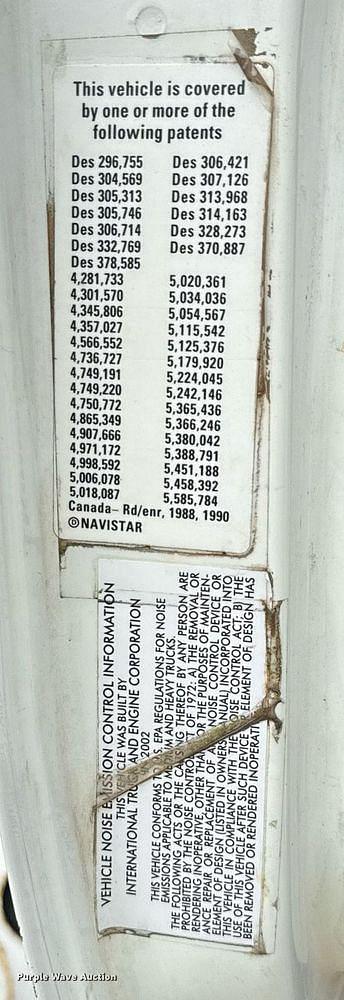 This vehicle is covered
by one or more of the
following patents
Des 296,755 Des 306,421
Des 304,569 Des 307,126
Des 305,313 Des 313,968
Des 305,746 Des 314,163
Des 306,714 Des 328,273
Des 332,769 Des 370,887
Des 378,585
4,281,733 5,020,361
4,301,570 5,034,036
4,345,806 5,054,567
4,357,027 5,115,542
4,566,552 5,125,376
4,736,727 5,179,920
4,749,191 5,224,045
4,749,220 5,242,146
4,750,772 5,365,436
4,865,349 5,366,246
4,907,666 5,380,042
4,971,172 5,388,791
4,998,592 5,451,188
5,006,078 5,458,392
5,018,087 5,585,784
Canada– Rd/enr, 1988, 1990
©NAVISTAR
VEHICLE NOISE EMISSION CONTROL INFORMATION
THIS VEHICLE WAS BUILT BY
INTERNATIONAL TRUCK AND ENGINE CORPORATION
2002
THIS VEHICLE CONFORMS U.S. EPA REGULATIONS FOR NOISE
EMISSIONS APPLICABLE TO MEDIUM AND HEAVY TRUCKS.
THE FOLLOWING ACTS OR THE CAUSING THEREOF BY ANY PERSON ARE
PROHIBITED BY THE NOISE CONTROL ACT OF 1972: A) THE REMOVAL OR
RENDERING INOPERATIVE, OTHER THAN FOR THE PURPOSES OF MAINTEN-
ANCE REPAIR OR REPLACEMENT OF ANY NOISE CONTROL DEVICE OR
ELEMENT OF DESIGN (LISTED IN OWNERS MANUAL) INCORPORATED INTO
THIS VEHICLE IN COMPLIANCE WITH THE NOISE CONTROL ACT, B) THE
USE OF THIS VEHICLE AFTER SUCH DEVICE OR ELEMENT OF DESIGN HAS
BEEN REMOVED OR RENDERED INOPERATIVE
Purple Wave Auction